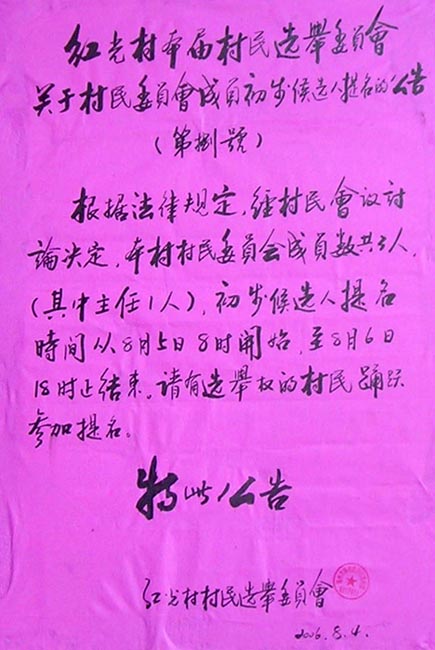 红光村本届村民选舉委員會
关于村民委員會成員初步候选人提名的公告
（第捌號）
根据法律规定，經村民會议討
論决定，本村村民委員会成員数共3人，
（其中主任1人），初步候选人提名
時间从8月5日8时開始，至8月6日
18时止结束。请有选舉权的村民踊跃
参加提名。
特此公告
红光村村民选舉委員會
2006.8.4.